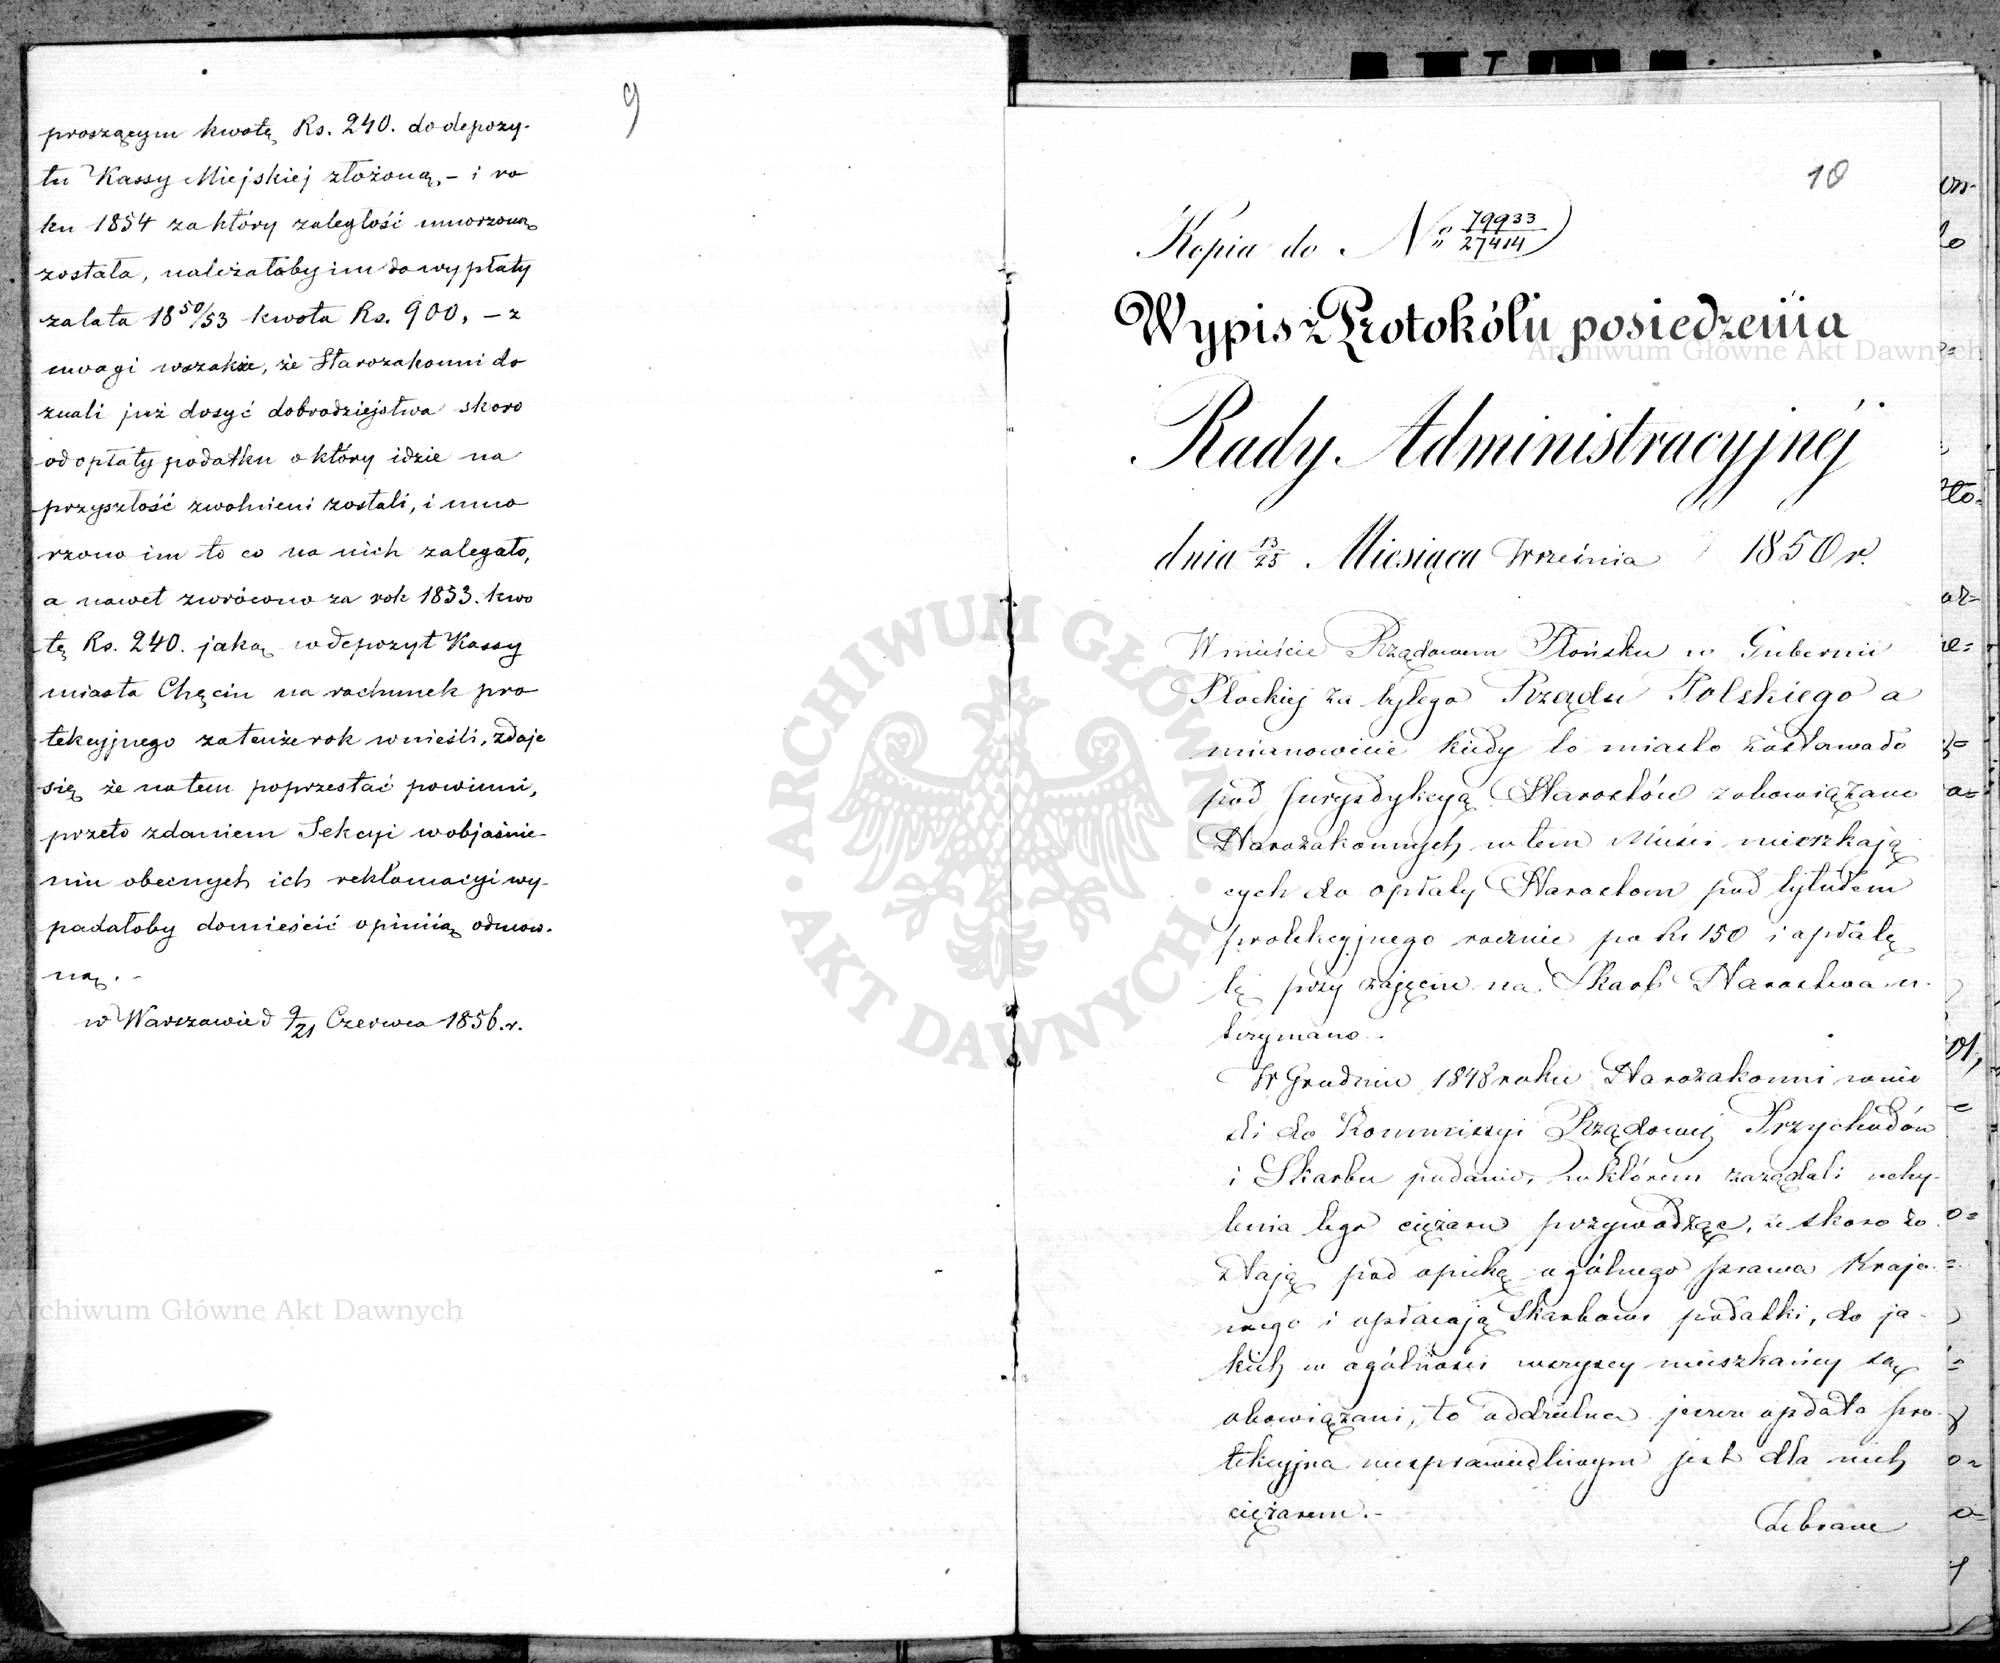 9
proszącym kwotę Rs. 240. do depozy-
tu Kassy Miejskiej złożoną, – i ro
ku 1854 za który zaległość umorzoną
została, należałoby im do wypłaty
za lata 18 50/53 kwota Rs. 900, – z
uwagi wszakże, że Starozakonni do
znali już dosyć dobrodziejstwa skoro
od opłaty podatku o który idzie na
przyszłość zwolnieni zostali, i umo
rzono im to co na nich zalegało,
a nawet zwrócono za rok 1853. kwo
tę Rs. 240. jaką w depozyt Kassy
miasta Chęcin na rachunek pro
tekcyjnego za tenże rok wnieśli, zdaje
się że na tem poprzestać powinni,
przeto zdaniem Sekcyi w objaśnie-
niu obecnych ich reklamacyi wy-
padałoby domieścić opinią odmow-
ną. –
w Warszawie d 9/21 Czerwca 1856. r.
10
Kopia do No 79933/27414
Wypis z Protokółu posiedzenia
Rady Administracyjnéj
dnia 13/25 Miesiąca Września 1850 r.
W mieście Rządowem Płońsku w Gubernii
Płockiej za byłego Rządu Polskiego a
mianowicie kiedy to miasto zostawało
pod Jurysdykcyą Starostów zobowiązano
Starozakonnych w tem Mieści mieszkają
cych do opłaty Starostom pod tytułem
protekcyjnego rocznie po Rs 150 i opłatę
tę przy zajęciu na Skarb Starostwa u-
trzymano. –
W Grudniu 1848 roku Starozakonni wnie
śli do Kommissyi Rządowej Przychodów
i Skarbu podanie, w którem zażądali uchy-
lenia tego ciężaru przywodząc, że skoro zo
stają pod opieką ogólnego prawa Krajo-
wego i opłacają Skarbowi podatki, do ja-
kich w ogólności wszyscy mieszkańcy są
obowiązani, to oddzielna jeszcze opłata pro-
tekcyjna niesprawiedliwym jest dla nich
ciężarem. –
Zebrane
Archiwum Główne Akt Dawnych
Archiwum Główne Akt Dawnych
ARCHIWUM GŁÓWNE · AKT DAWNYCH ·